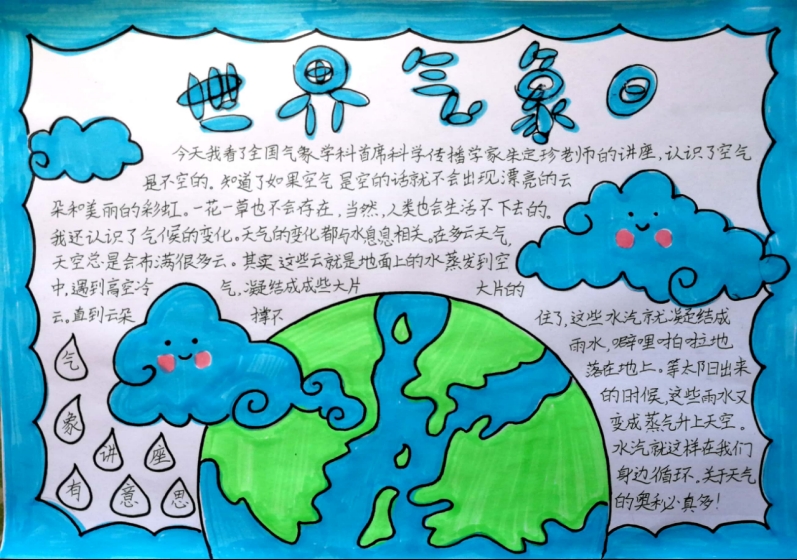 世界气象日
今天我看了全国气象学科首席科学传播学家朱定珍老师的讲座，认识了空气
是不空的。知道了如果空气是空的话就不会出现漂亮的云
朵和美丽的彩虹。一花一草也不会存在，当然，人类也会生活不下去的。
我还认识了气候的变化。天气的变化都与水息息相关。在多云天气，
天空总是会布满很多云。其实这些云就是地面上的水蒸发到空
中，遇到高空冷气，凝结成成些大片大片的
云。直到云朵撑不住了，这些水汽就凝结成
雨水，噼哩啪啦地
落在地上。等太阳出来
的时候，这些雨水又
变成蒸气升上天空。
水汽就这样在我们
身边循环。关于天气
的奥秘真多！
气
象
讲座
有意思